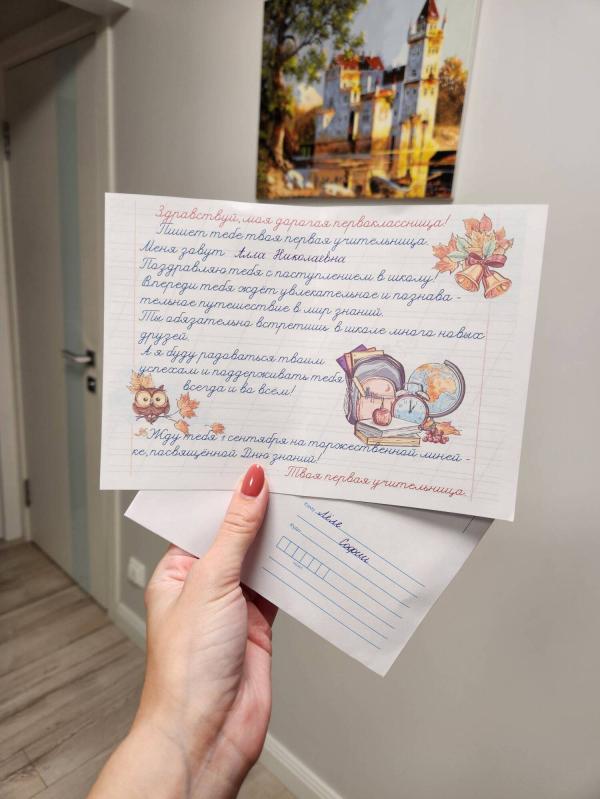 Здравствуй, моя дорогая первоклассница!
Пишет тебе твоя первая учительница.
Меня зовут Алла Николаевна
Поздравляю тебя с поступлением в школу!
Впереди тебя ждёт увлекательное и познава -
тельное путешествие в мир знаний.
Ты обязательно встретишь в школе много новых
друзей.
А я буду радоваться твоим
успехам и поддерживать тебя
всегда и во всём!
Жду тебя 1 сентября на торжественной линей -
ке, посвящённой Дню знаний!
Твоя первая учительница.
Кому
Куда
Софии